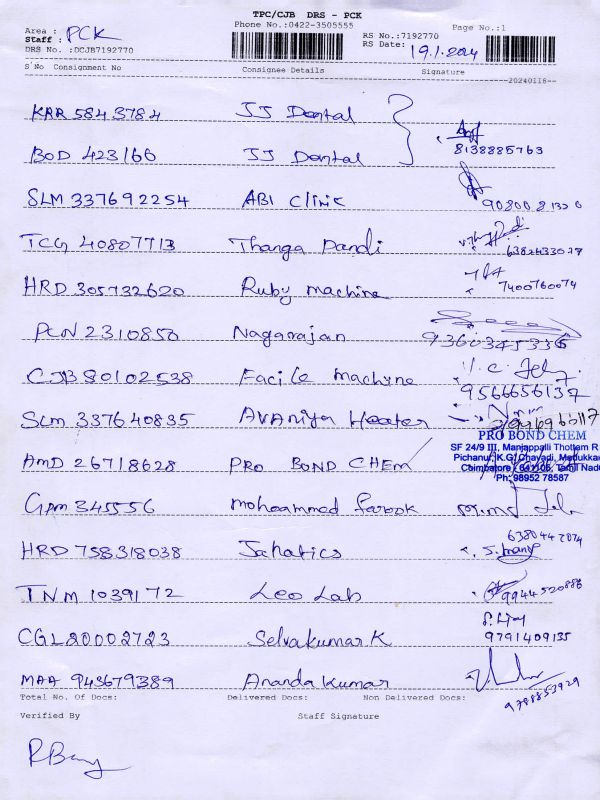 TPC/CJB DRS - PCK
Phone No.:0422-3505555
Area : PCK
Staff :
RS No.:7192770
Page No.:1
DRS No. :DCJB7192770
RS Date: 19.1.2024
S'No Consignment No Consignee Details Signature
20240116
KAR 5843784 JJ Dental
BOD 423166 JJ Dental 8138885763
SLM 337692254 ABI Clinic
TCG 40807713 Thanga Pandi
HRD 305732620 Ruby machine 7400760074
PCN 2310850 Nagarajan 9360345336
CJB 80102538 Facile machine 9566656137
SLM 337640835 AVANiya Heater
AMD 26718628 PRO BOND CHEM
PRO BOND CHEM
SF 24/9 III, Manjappalli Thottam R
Pichanur, K.G. Chavadi, Madukka
Coimbatore - 641105, Tamil Nadu
Ph: 98952 78587
GPM 345556 mohoammed farook
HRD 758318038 Jahatics 6380442074
TNM 1039172 Leo Lab 9944520886
CGL20002723 Selvakumar K 9791409135
MAA 943679389 Ananda Kumar 9788853929
Total No. Of Docs: Delivered Docs: Non Delivered Docs:
Verified By Staff Signature